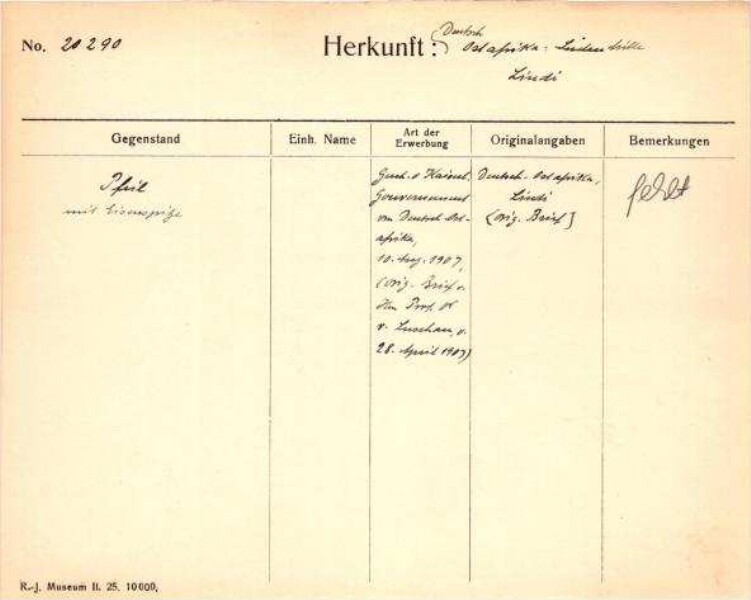 No. 20290
Herkunft: Deutsch
Ostafrika.
Lindi
Gegenstand
Einh. Name
Art der Erwerbung
Originalangaben
Bemerkungen
Pfeil
mit Eisenspitze
Gesch. v Kaiserl.
Gouvernement
von Deutsch Ost-
afrika,
10. Aug. 1907,
(orig. Brief v.
Hn Prof.
v. Luschan, v.
28. April 1907)
Deutsch-Ostafrika,
Lindi
(orig. Brief]
fehlt
R.-J. Museum II. 25. 10000,